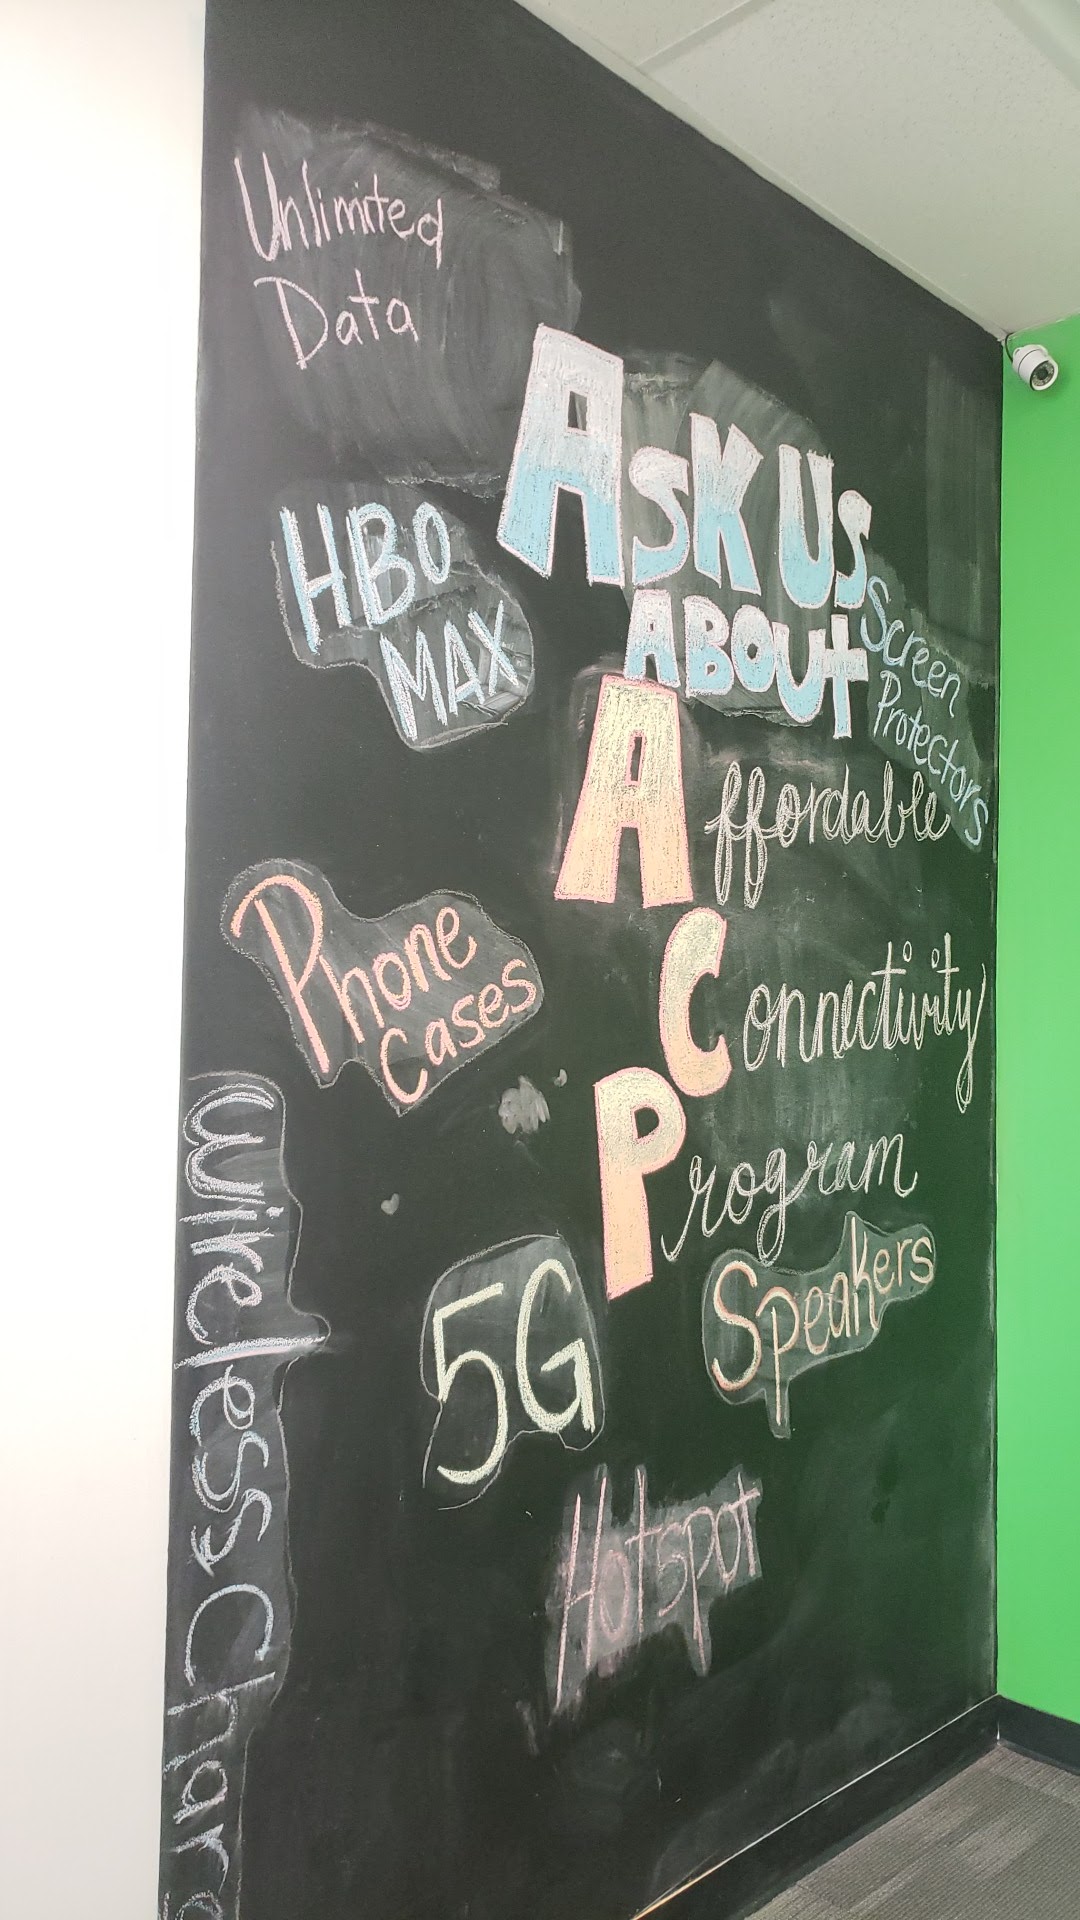 Unlimited
Data
ASK US
ABOUT
Screen
Protectors
HBO
MAX
Affordable
Connectivity
Program
Phone
Cases
Wireless Charg
5G
Speakers
Hotspot